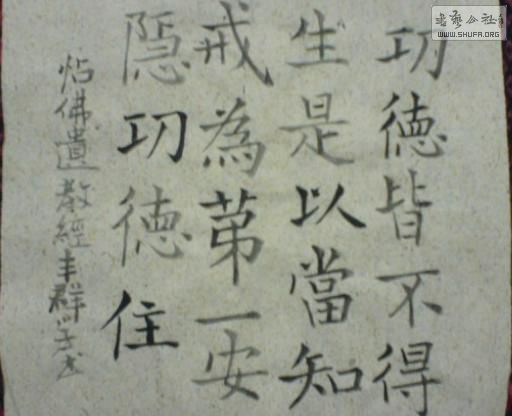 功德皆不得
生是以當知
戒為苐一安
隠功德住
佛遺教經丰群
书艺公社
www.SHUFA.ORG